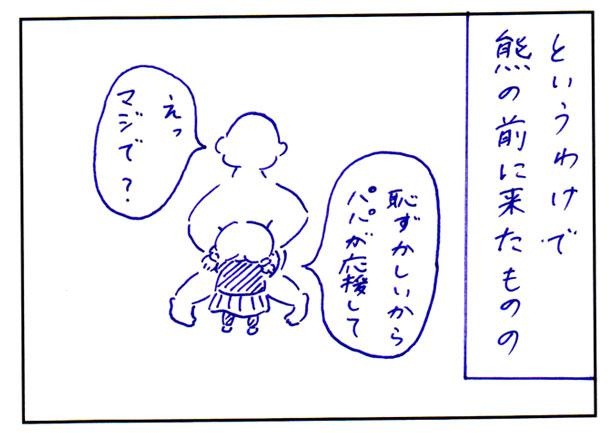 というわけで
熊の前に来たものの
恥ずかしいから
パパが応援して
えっ
マジで?